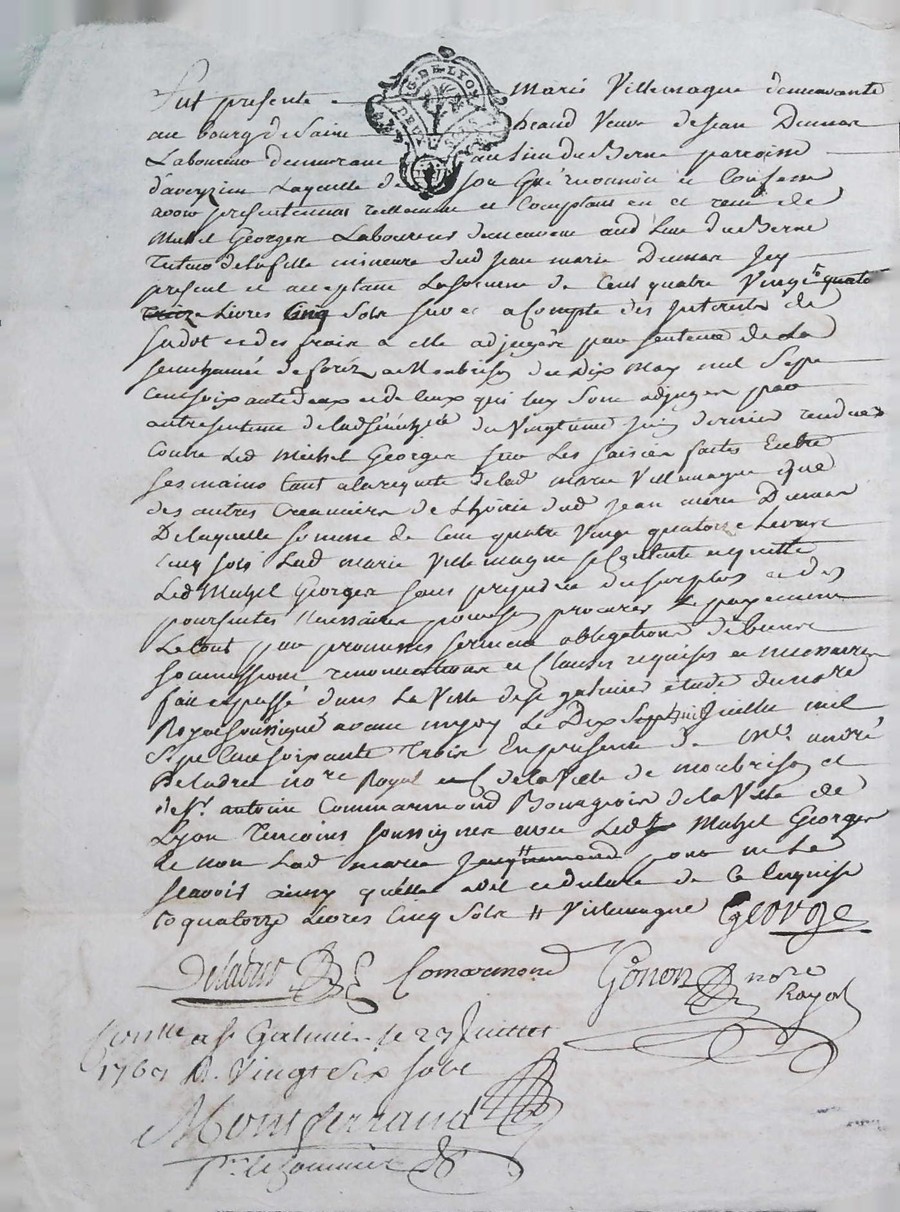 G. DE. LYON
DEUX
Fut presente Marie Villemagne demeurante
au bourg de Saint heand Veuve de Jean Dumas
Laboureur demeurant au lieu du Berne parroisse
d'aveyzieu Laquelle de son gré reconnoit et Confesse
avoir presentement reellement et Comptant eu et receu de
Michel George Laboureur demeurant aud Lieu du Berne
Tuteur de la fille mineure dud Jean marie Dumas Icy
present et acceptant La somme de Cent quatre Vingt quatorze
Livres Cinq Sols sur et a Compte des Interests de
sa dot et des frais a elle adjugées par sentence de La
senechaussée de forêz a Montbrison du Dix May mil Sept
Cent soixante deux et de Ceux qui luy sont adjugés par
autre sentence de lad sénéchaussée du Vingt juin dernier rendues
Contre Led Michel George sur Les saisies faites Entre
ses mains tant a la requete de lad marie Villemagne que
des autres Creanciers de L'hoirie dud Jean marie Dumas
De laquelle somme de Cent quatre Vingt quatorze Livres
cinq sols Lad marie Villemagne se Contente et quitte
Led Michel George sans prejudice du surplus et des
poursuites necessaires pour s'en procurer Le payement
Le tout par promesses serments obligations de biens
soumissions renonciations et Clauses requises et necessaires
fait et passé dans La Ville de St galmier etude du notre
Royal soussigné avant midy Le Dix Sept Juillet mil
Sept Cent soixante Trois En presence de Me andré
Deladret nore Royal en de la Ville de montbrison et
de Sr antoine Commarmond Bourgeois de la Ville de
Lyon Temoins soussignés avec Led Michel George
et non Lad marie pour ne le
sçavoir ainsy qu'elle a dit et declaré de Ce Enquise
quatorze Livres Cinq Sols Villemagne George
Comarmond Gonon nore
Royal
Conlle a St Galmier le 27 Juillet
176 R. Vingt Six sols
Montferrand